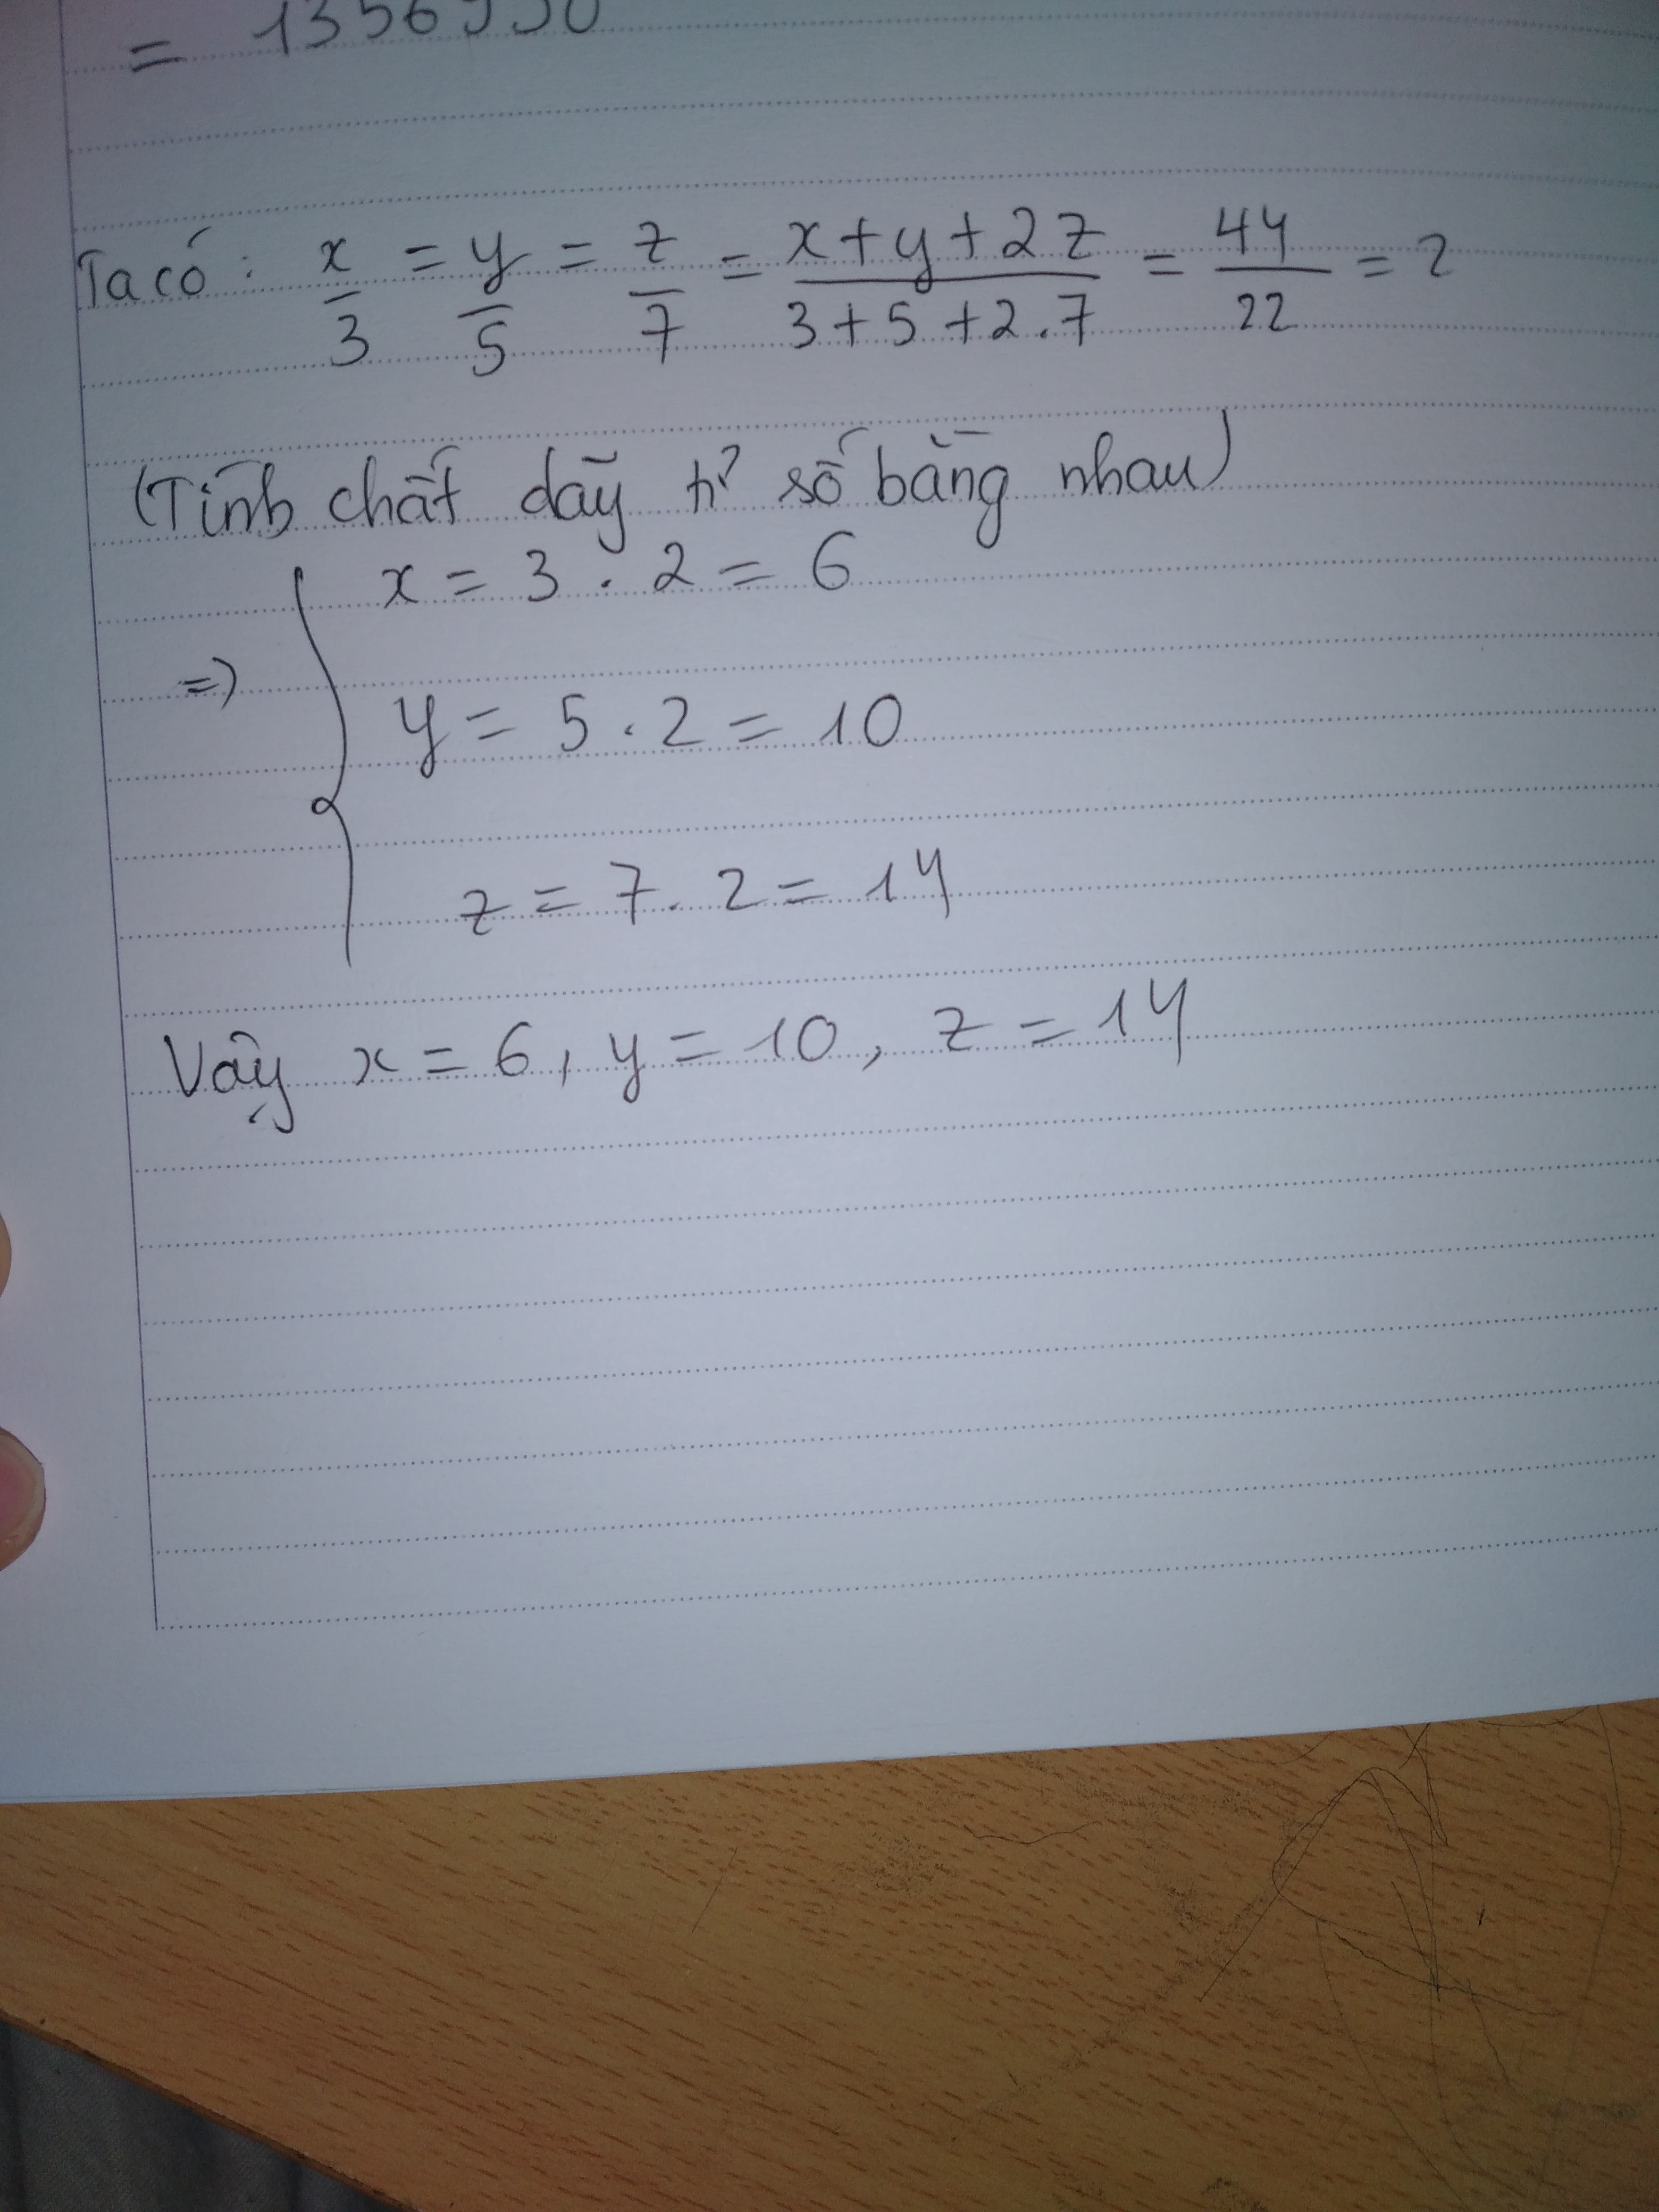 = 1356
Ta có: x/3 = y/5 = z/7 = (x+y+2z)/(3+5+2.7) = 44/22 = 2
(Tính chất dãy tỉ số bằng nhau)
=> { x = 3 . 2 = 6
y = 5 . 2 = 10
z = 7 . 2 = 14
Vậy x = 6, y = 10, z = 14